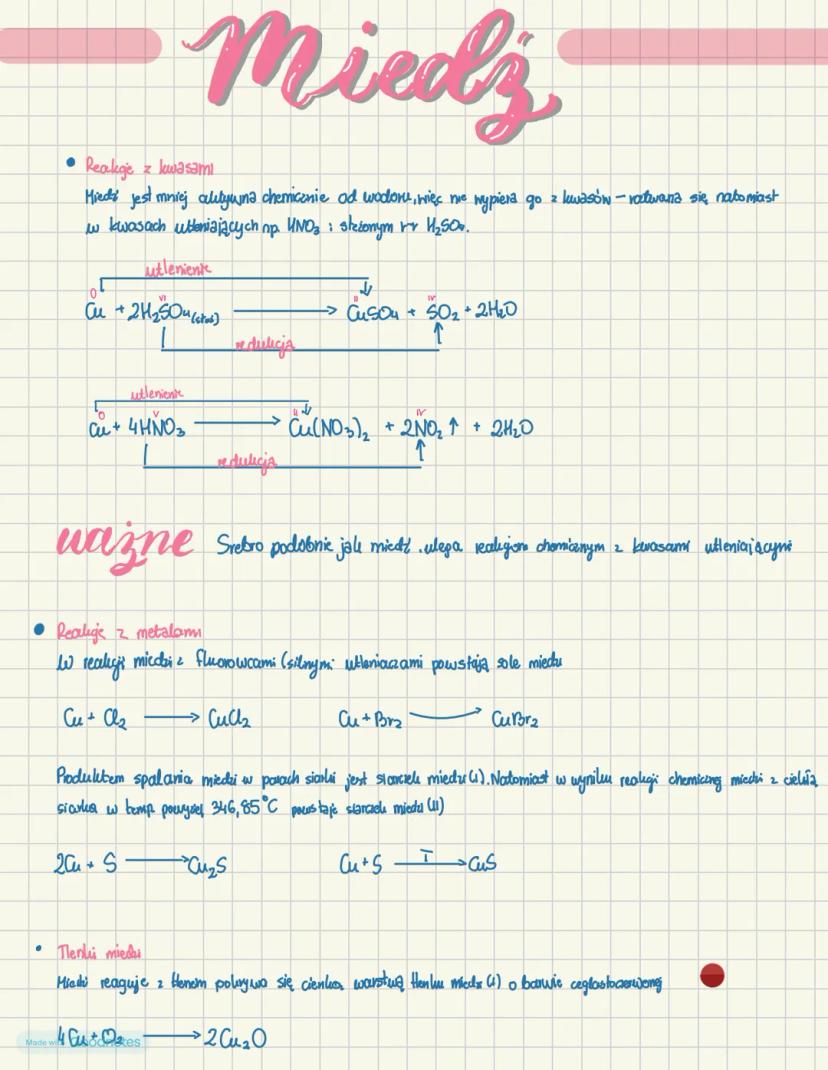 Miedź
• Reakcje z kwasami
Miedź jest mniej aktywna chemicznie od wodoru, więc nie wypiera go z kwasów – roztwarza się natomiast
w kwasach utleniających np. HNO₃ i stężonym rr H₂SO₄.
utlenienie
0 VI II IV
Cu + 2H₂SO₄(stęż) ⟶ CuSO₄ + SO₂ + 2H₂O
redukcja
utlenienie
0 V II IV
Cu + 4HNO₃ ⟶ Cu(NO₃)₂ + 2NO₂↑ + 2H₂O
redukcja
ważne Srebro podobnie jak miedź ulega reakcjom chemicznym z kwasami utleniającymi
• Reakcje z metalami
W reakcji miedzi z fluorowcami (silnymi utleniaczami powstają sole miedzi
Cu + Cl₂ ⟶ CuCl₂ Cu + Br₂ ⟶ CuBr₂
Produktem spalania miedzi w parach siarki jest siarczek miedzi (I). Natomiast w wyniku reakcji chemicznej miedzi z ciekłą
siarką w temp powyżej 346,85°C powstaje siarczek miedzi (II)
2Cu + S ⟶ Cu₂S Cu + S T⟶ CuS
• Tlenki miedzi
Miedź reaguje z tlenem pokrywa się cienką warstwą tlenku miedzi (I) o barwie ceglastoczerwonej
4Cu + O₂ ⟶ 2Cu₂O
Made with Goodnotes